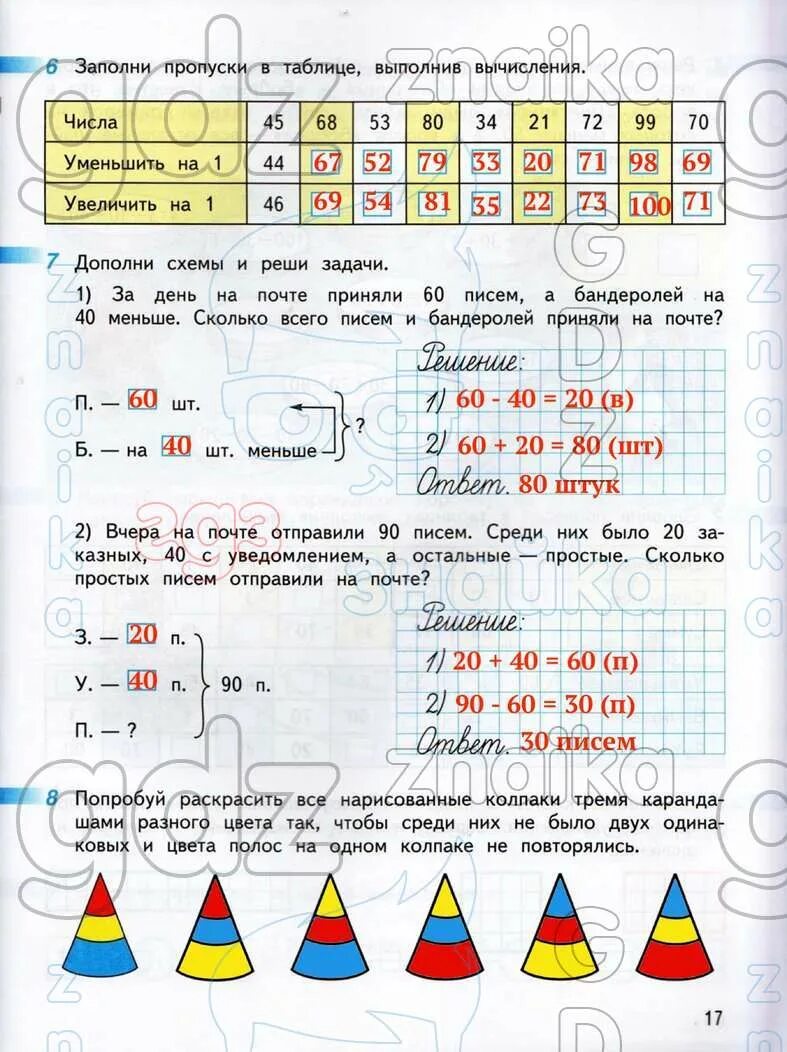 6 Заполни пропуски в таблице, выполнив вычисления.
Числа 45 68 53 80 34 21 72 99 70
Уменьшить на 1 44 67 52 79 33 20 71 98 69
Увеличить на 1 46 69 54 81 35 22 73 100 71
7 Дополни схемы и реши задачи.
1) За день на почте приняли 60 писем, а бандеролей на
40 меньше. Сколько всего писем и бандеролей приняли на почте?
Решение:
П. — 60 шт.
1) 60 - 40 = 20 (в)
?
Б. — на 40 шт. меньше
2) 60 + 20 = 80 (шт)
Ответ. 80 штук
2) Вчера на почте отправили 90 писем. Среди них было 20 за-
казных, 40 с уведомлением, а остальные — простые. Сколько
простых писем отправили на почте?
Решение:
З. — 20 п.
1) 20 + 40 = 60 (п)
У. — 40 п. 90 п.
2) 90 - 60 = 30 (п)
П. — ?
Ответ. 30 писем
8 Попробуй раскрасить все нарисованные колпаки тремя каранда-
шами разного цвета так, чтобы среди них не было двух одина-
ковых и цвета полос на одном колпаке не повторялись.
17
gdz
znaika
GDZ
znaika
znaika
гдз
знайка
gdz
znaika